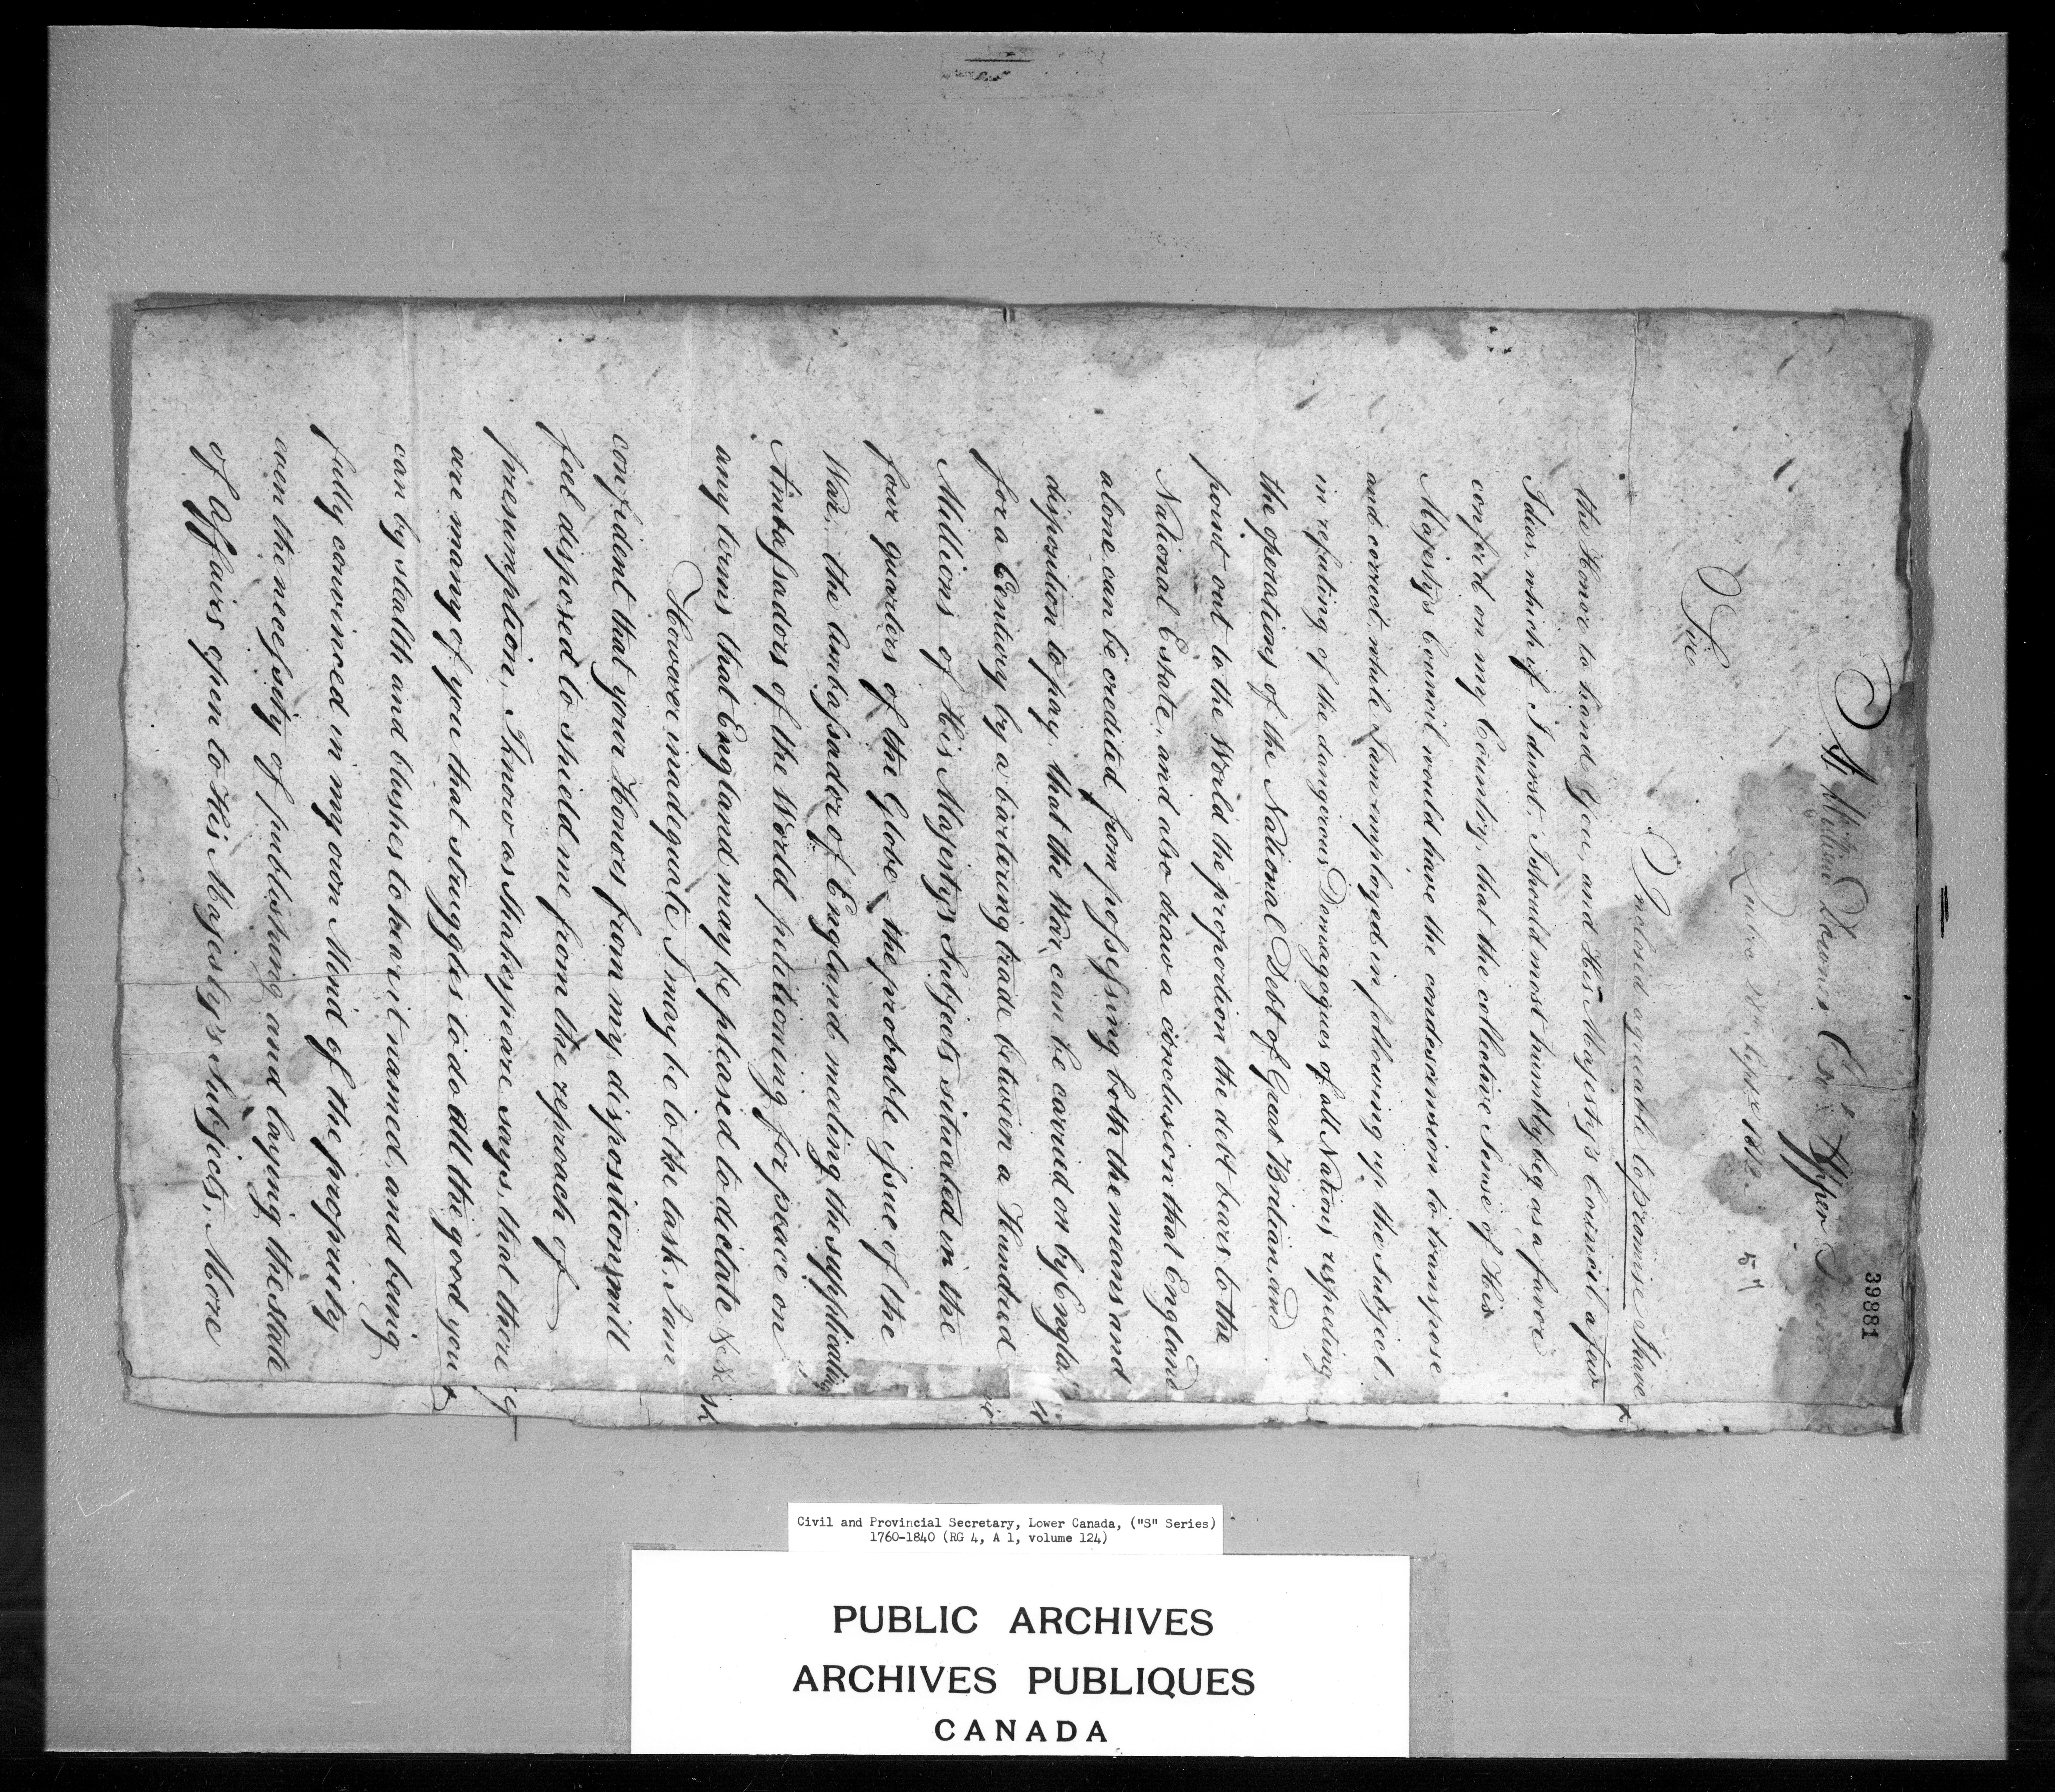 39881
William Downes Esqr. Upper
Quebec Sept. 1812.
57
Sir
Inclosed agreeable to promise I have
the Honor to hand You, and His Majesty's Council a few
Ideas, which if I durst, I should most humbly beg as a favor
confer'd on my Country, that the collective Sense of His
Majesty's Council would have the condescension to transpose
and correct, while I am employed in following up the subject,
in refuting of the dangerous Demagogues of all Nations respecting
the operations of the National Debt of Great Britian, and
point out to the World the proportion the debt bears to the
National Estate, and also draw a conclusion that England
alone can be credited from possessing both the means and
disposition to pay, that the War can be carried on by Engla
for a Century by a bartering trade between a Hundred
Millions of His Majesty's Subjects situated in the
four quarters of the Globe, the probable issue of the
War, the Ambassador of England meeting the supplicating
Ambassadors of the World petitioning for peace on
any terms that England may be pleased to dictate &c &c
However inadequate I may be to the task, I am
confident that your Honors from my disposition, will
feel disposed to shield me from the reproach of
presumption, I know as Shakespeare says, that there
are many of you that struggles to do all the good you
can by stealth and blushes to hear it named, and being
fully convinced in my own Mind of the propriety
even the necessity of publishing and laying the state
of Affairs open to His Majesty's Subjects, More
Civil and Provincial Secretary, Lower Canada, ("S" Series)
1760-1840 (RG 4, A 1, volume 124)
PUBLIC ARCHIVES
ARCHIVES PUBLIQUES
CANADA